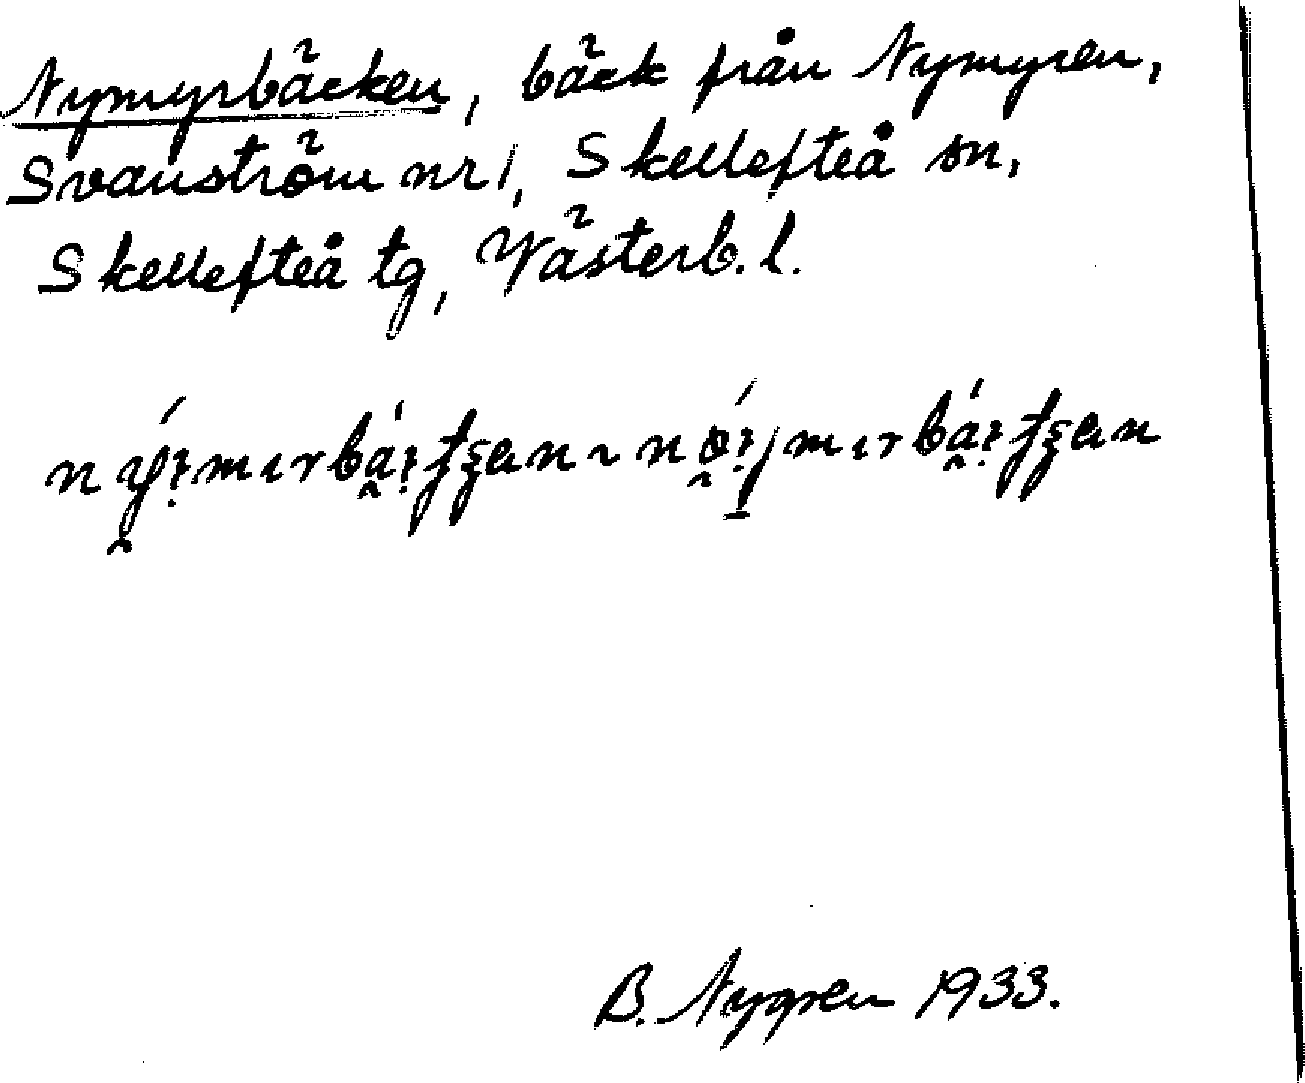 Nymyrbäcken, bäck från Nymyren,
Svanström nr 1, Skellefteå sn,
Skellefteå tg, Västerb. l.
B. Nygren 1933.